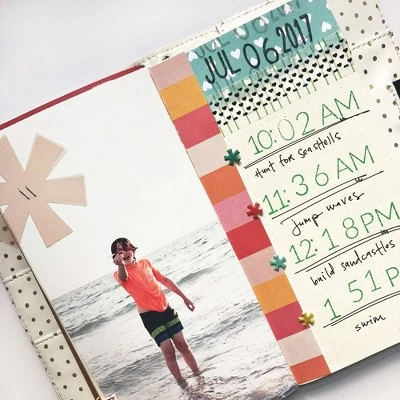 JUL 06.2017
10:02 AM
Hunt for seashells
11:36 AM
Jump waves
12:18 PM
build sandcastles
1 51 P
swim